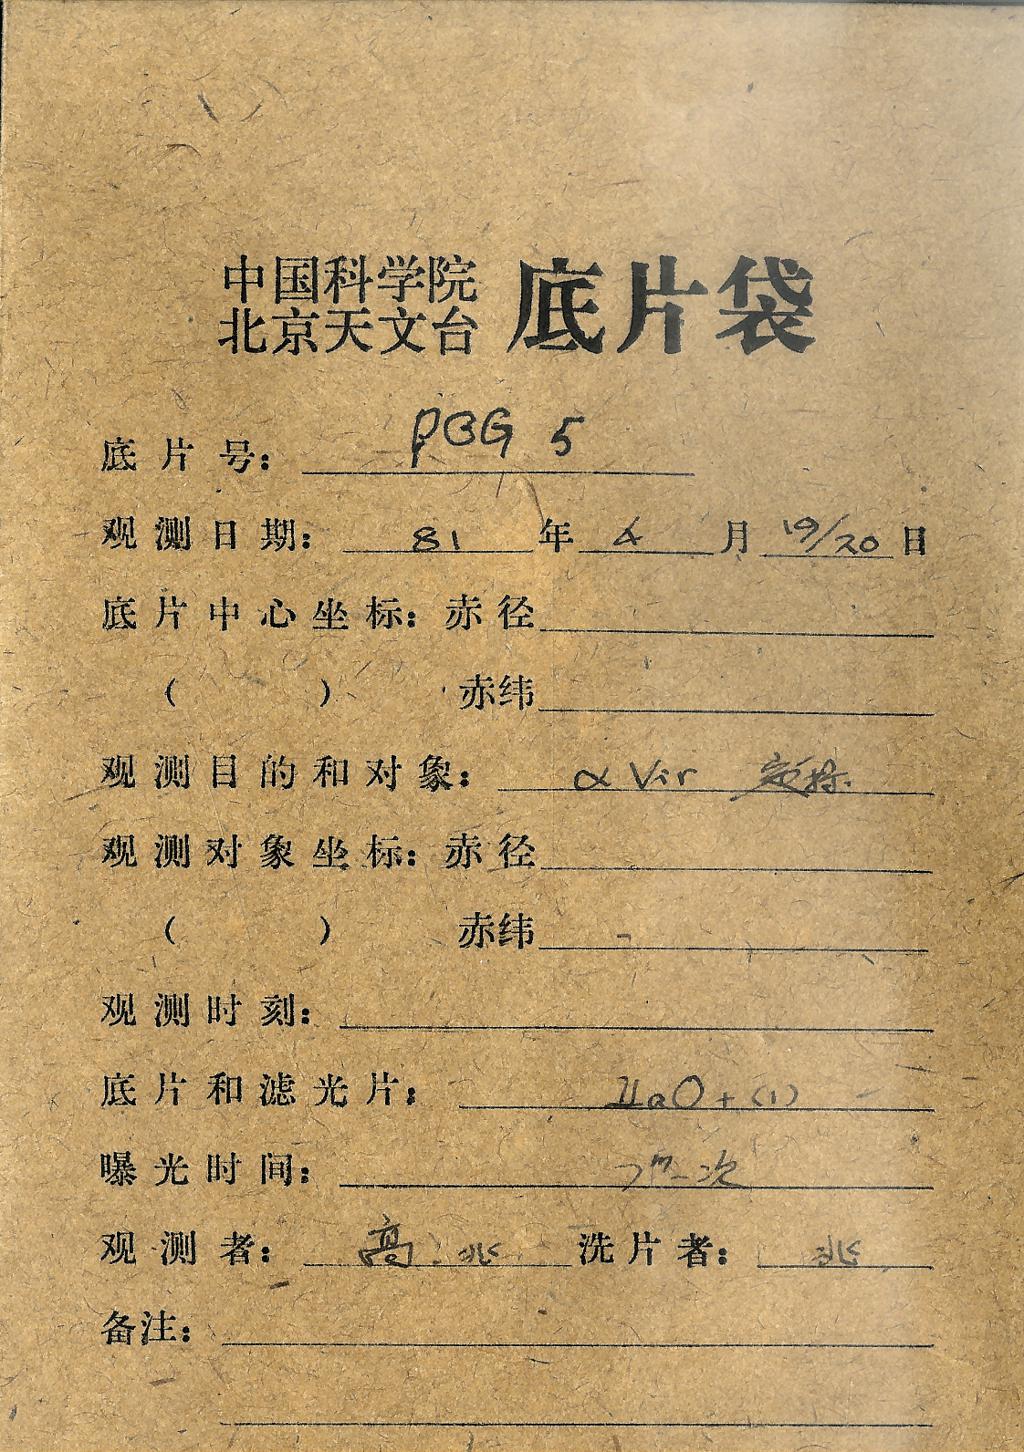 中国科学院
北京天文台 底片袋
底片号: PBG 5
观测日期: 81 年 4 月 19/20 日
底片中心坐标: 赤径
( ) 赤纬
观测目的和对象: α Vir 定标
观测对象坐标: 赤径
( ) 赤纬 -
观测时刻:
底片和滤光片: IIaO + (1)
曝光时间: 次
观测者: 高. 兆 洗片者: 兆
备注: